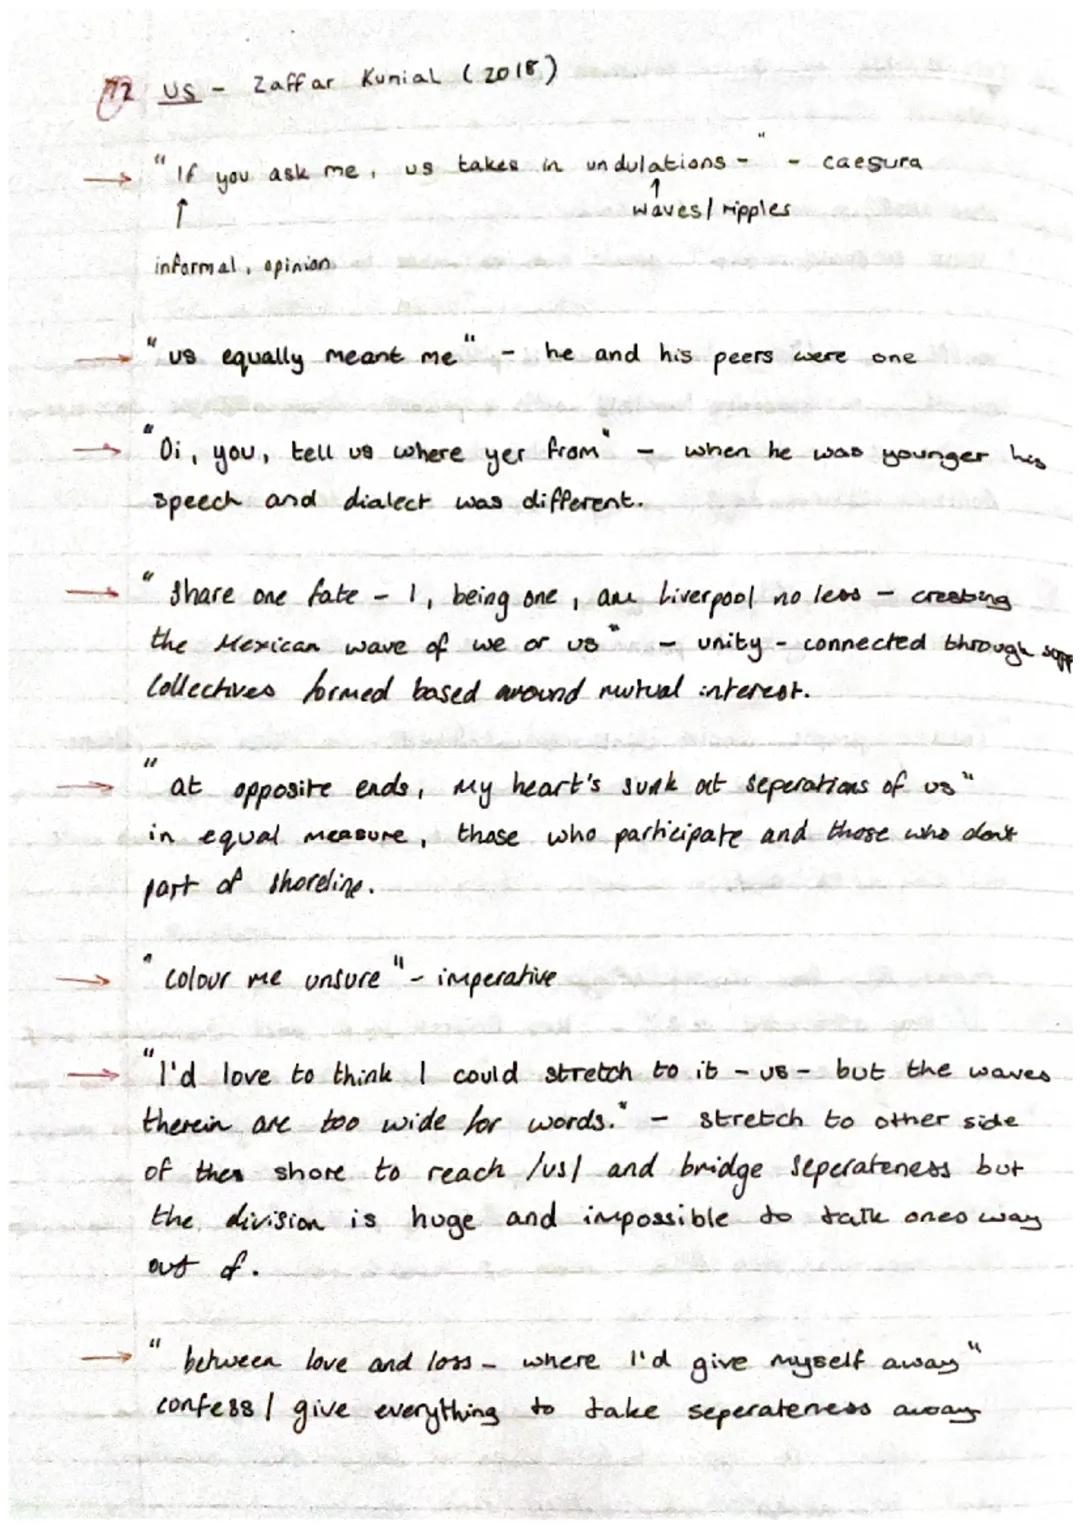 72 US - Zaffar Kunial (2018)
→ "If you ask me, us takes in undulations -" - caesura
↑ ↑
waves/ ripples
informal, opinion
→ "us equally meant me" - he and his peers were one
→ "Oi, you, tell us where yer from" - when he was younger his
speech and dialect was different.
→ "Share one fate - I, being one, am Liverpool no less - cresting
the Mexican wave of we or us" - unity - connected through supp
Collectives formed based around mutual interest.
→ "at opposite ends, my heart's sunk at seperations of us"
in equal measure, those who participate and those who don't
part of shoreline.
→ "colour me unsure" - imperative
→ "I'd love to think I could stretch to it - us - but the waves
therein are too wide for words." - stretch to other side
of the shore to reach /us/ and bridge seperateness but
the division is huge and impossible to talk ones way
out of.
→ "between love and loss - where I'd give myself away"
confess/ give everything to take seperateness away